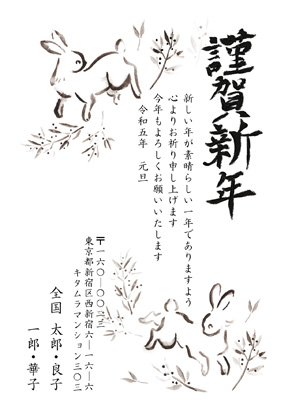 謹賀新年
新しい年が素晴らしい一年でありますよう
心よりお祈り申し上げます
今年もよろしくお願いいたします
令和五年　元旦
〒一六〇-〇〇二三
東京都新宿区西新宿六-一六-六
キタムラマンション三〇三
全国　太郎・良子
一郎・華子